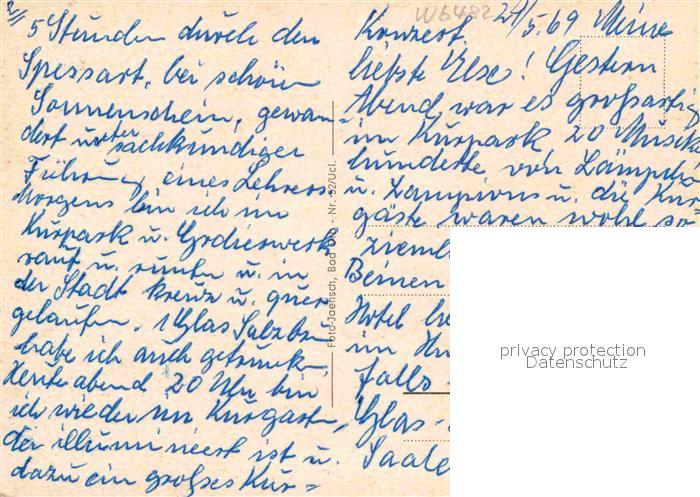 2)
5 Stunden durch den
Spessart, bei schönem
Sonnenschein, gewan-
dert unter sachkundiger
Führung eines Lehrers.
Morgens bin ich im
Kurpark u. Gradierwerk
rauf u. runter u. in
der Stadt kreuz u. quer
gelaufen. 1 Glas Salzbru
habe ich auch getrunken,
Heute abend 20 Uhr bin
ich wieder im Kurgarten,
der illuminiert ist u.
dazu ein großes Kur=
Konzert,
W6482 21/5.69 Meine
liebste Ilse! Gestern
Abend war es großartig
im Kurpark, 20 Musik
hunderte von Lämpch
u. Lampions u. die Kur
gäste waren wohl so
zieml
Beinen
Hotel
im
falls
Glas-
Saale
Foto-Jaensch, Bad Orb - Nr. 92/Ucl.
privacy protection
Datenschutz